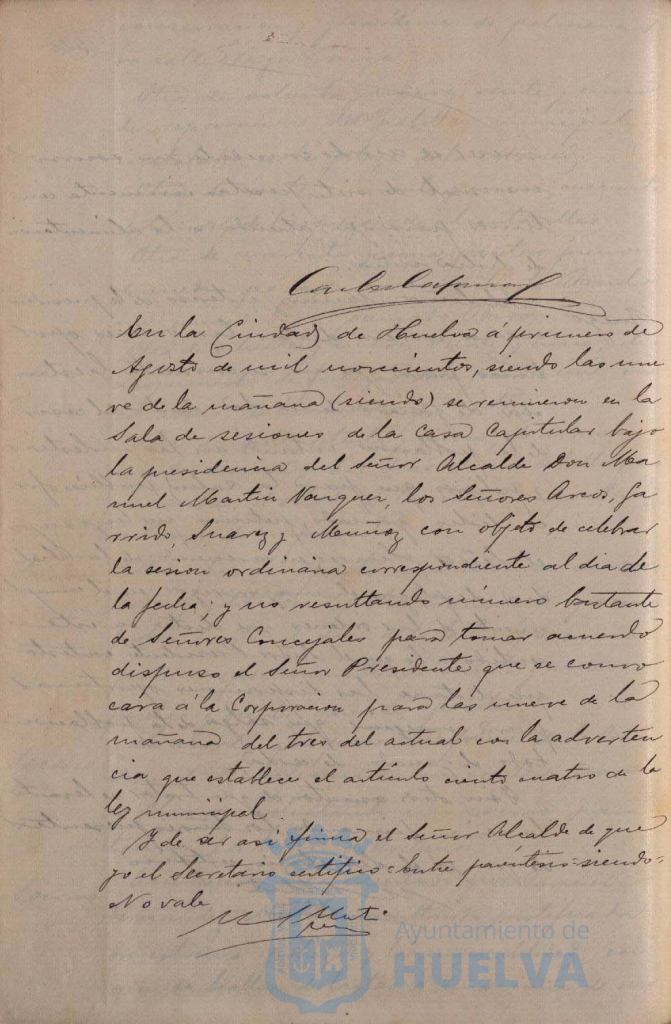 En la Ciudad de Huelva á primero de
Agosto de mil novecientos, siendo las nue
ve de la mañana (siendo) se reunieron en la
Sala de sesiones de la casa Capitular bajo
la presidencia del Señor Alcalde Don Ma
nuel Martin Vazquez, los Señores Arcos, Ga
rrido, Suarez y Muñoz con objeto de celebrar
la sesion ordinaria correspondiente al dia de
la fecha; y no resultando número bastante
de Señores Concejales para tomar acuerdo
dispuso el Señor Presidente que se convo
cara á la Corporacion para las nueve de la
mañana del tres del actual con la adverten
cia que establece el artículo ciento cuatro de la
ley municipal.
Y de ser asi firma el Señor Alcalde de que
yo el Secretario certifico = Entre paréntesis = siendo =
No vale
Ayuntamiento de
HUELVA